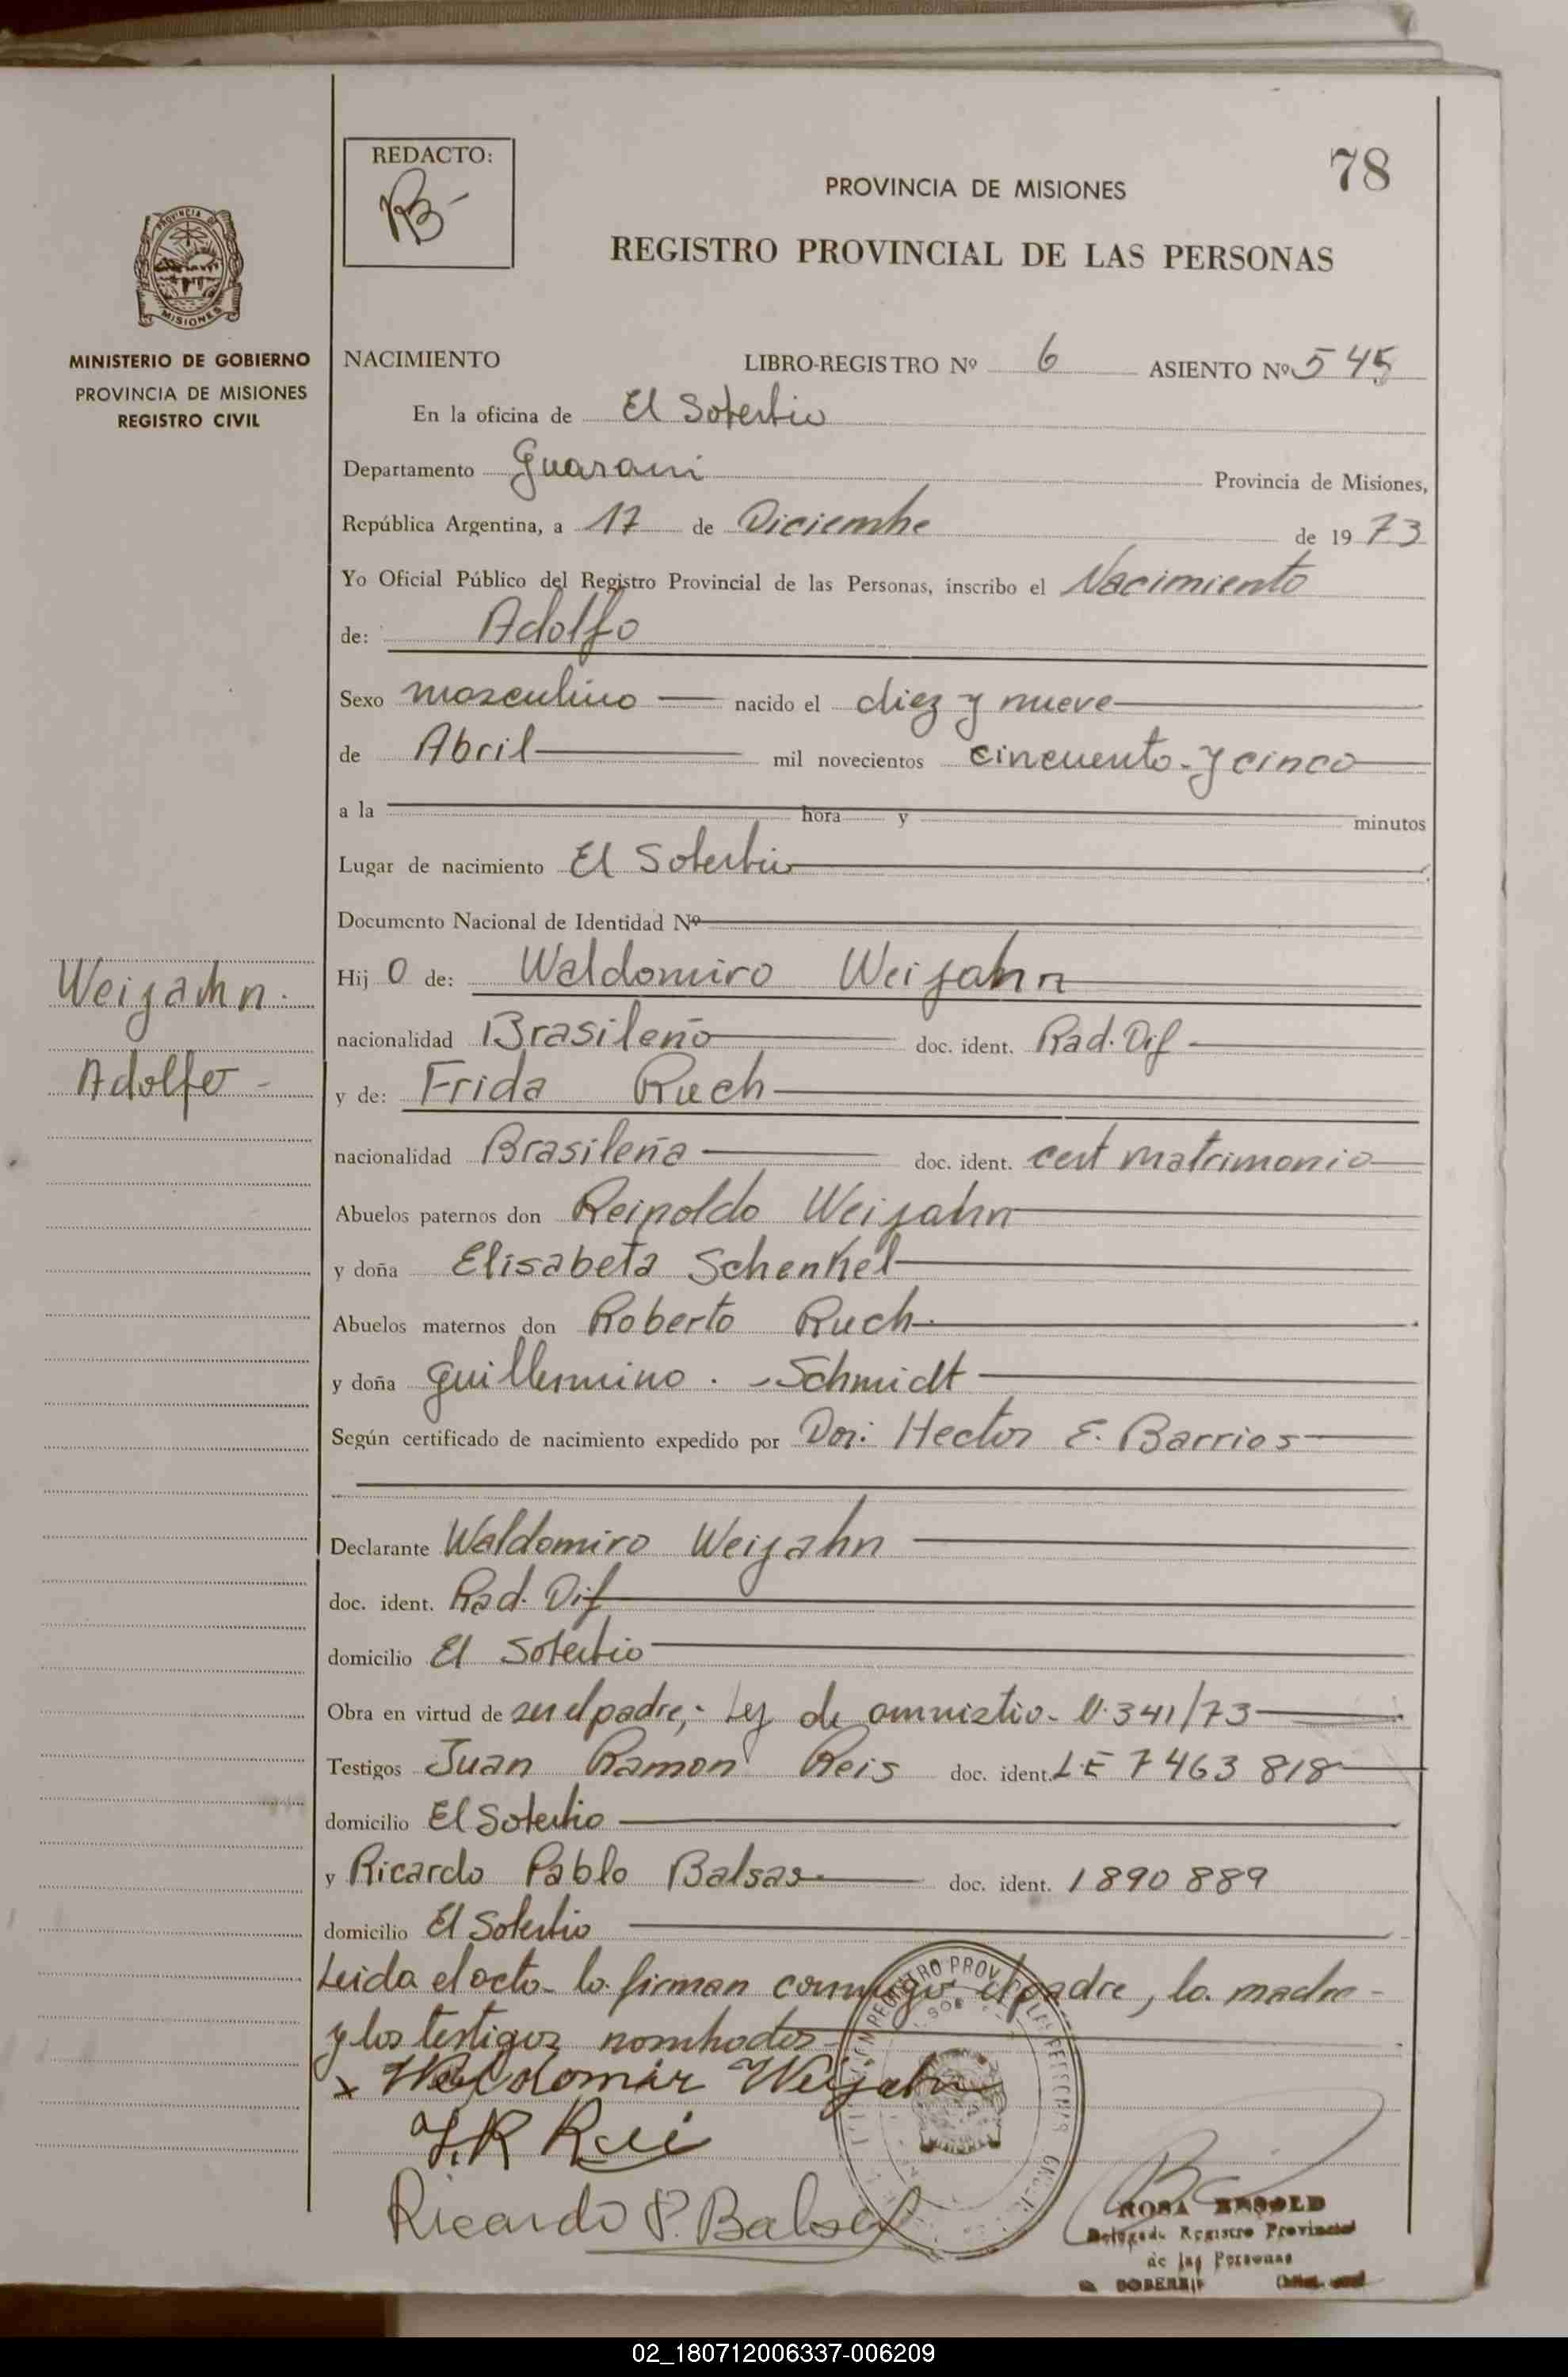 78
REDACTO:
RB-
PROVINCIA DE MISIONES
REGISTRO PROVINCIAL DE LAS PERSONAS
PROVINCIA DE
MISIONES
MINISTERIO DE GOBIERNO
PROVINCIA DE MISIONES
REGISTRO CIVIL
NACIMIENTO LIBRO-REGISTRO Nº 6 ASIENTO Nº 545
En la oficina de El Soberbio
Departamento Guarani Provincia de Misiones,
República Argentina, a 17 de Diciembre de 1973
Yo Oficial Público del Registro Provincial de las Personas, inscribo el Nacimiento
de: Adolfo
Sexo masculino nacido el diez y nueve
de Abril mil novecientos cincuenta y cinco
a la hora y minutos
Lugar de nacimiento El Soberbio
Documento Nacional de Identidad Nº
Weijahn.
Adolfo -
Hij o de: Waldomiro Weijahn
nacionalidad Brasileño doc. ident. Rad. Dif
y de: Frida Ruch
nacionalidad Brasileña doc. ident. cert matrimonio
Abuelos paternos don Reinoldo Weijahn
y doña Elisabeta Schenkel
Abuelos maternos don Roberto Ruch
y doña Guillermina. Schmidt
Según certificado de nacimiento expedido por Dor: Hector E. Barrios
Declarante Waldomiro Weijahn
doc. ident. Rad. Dif
domicilio El Soberbio
Obra en virtud de ser el padre,- Ley de amnistia- 0.341/73
Testigos Juan Ramon Reis doc. ident. L.E 7463818
domicilio El Soberbio
y Ricardo Pablo Balsas doc. ident. 1890889
domicilio El Soberbio
Leida el acta lo firman conmigo el padre, la madre
y los testigos nombrados
x Waldomiro Weijahn
J.R Rei
Ricardo P. Balsa
ROSA
Registro Provincial
de las Personas
02_180712006337-006209